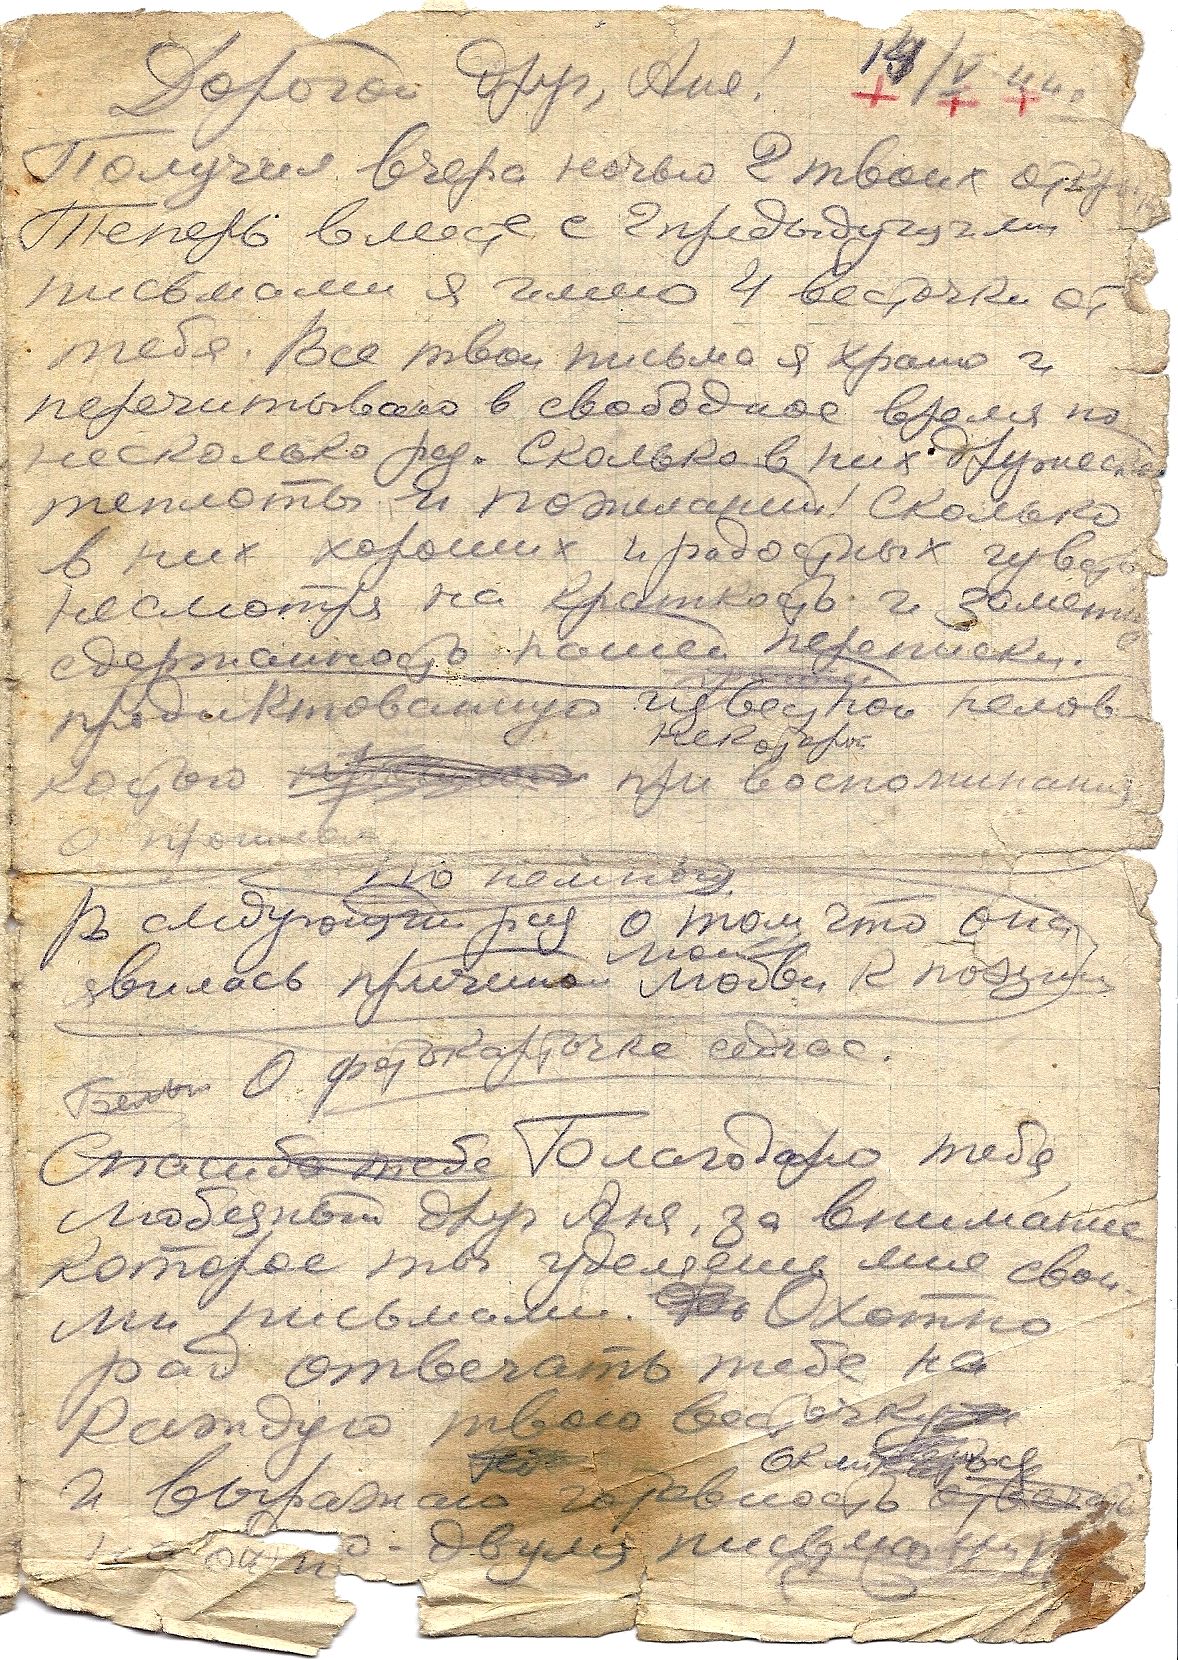 Дорогой друг, Аня! 14/V 44г.
Получил вчера ночью 2 твоих откры
Теперь вместе с 2 предыдущими
письмами я имею 4 весточки от
тебя. Все твои письма я храню и
перечитываю в свободное время по
несколько раз. Сколько в них дружеской
теплоты и пожеланий! Сколько
в них хороших и радостных чувств
несмотря на краткость и заметную
сдержанность нашей переписки.
продиктованную известной нелов
некоторой
костью при воспоминании
о прошлом
но немного
В следующий раз о том, что она
моей
явилась причиной любви к поэзии
О фотокарточке сейчас.
Спасибо тебе Благодарю тебя,
любезный друг Аня, за внимание
которое ты уделяешь мне свои-
ми письмами. Охотно
рад отвечать тебе на
каждую твою весточку
откликаться
и выражаю готовность отвечать
на одно - двумя письмами